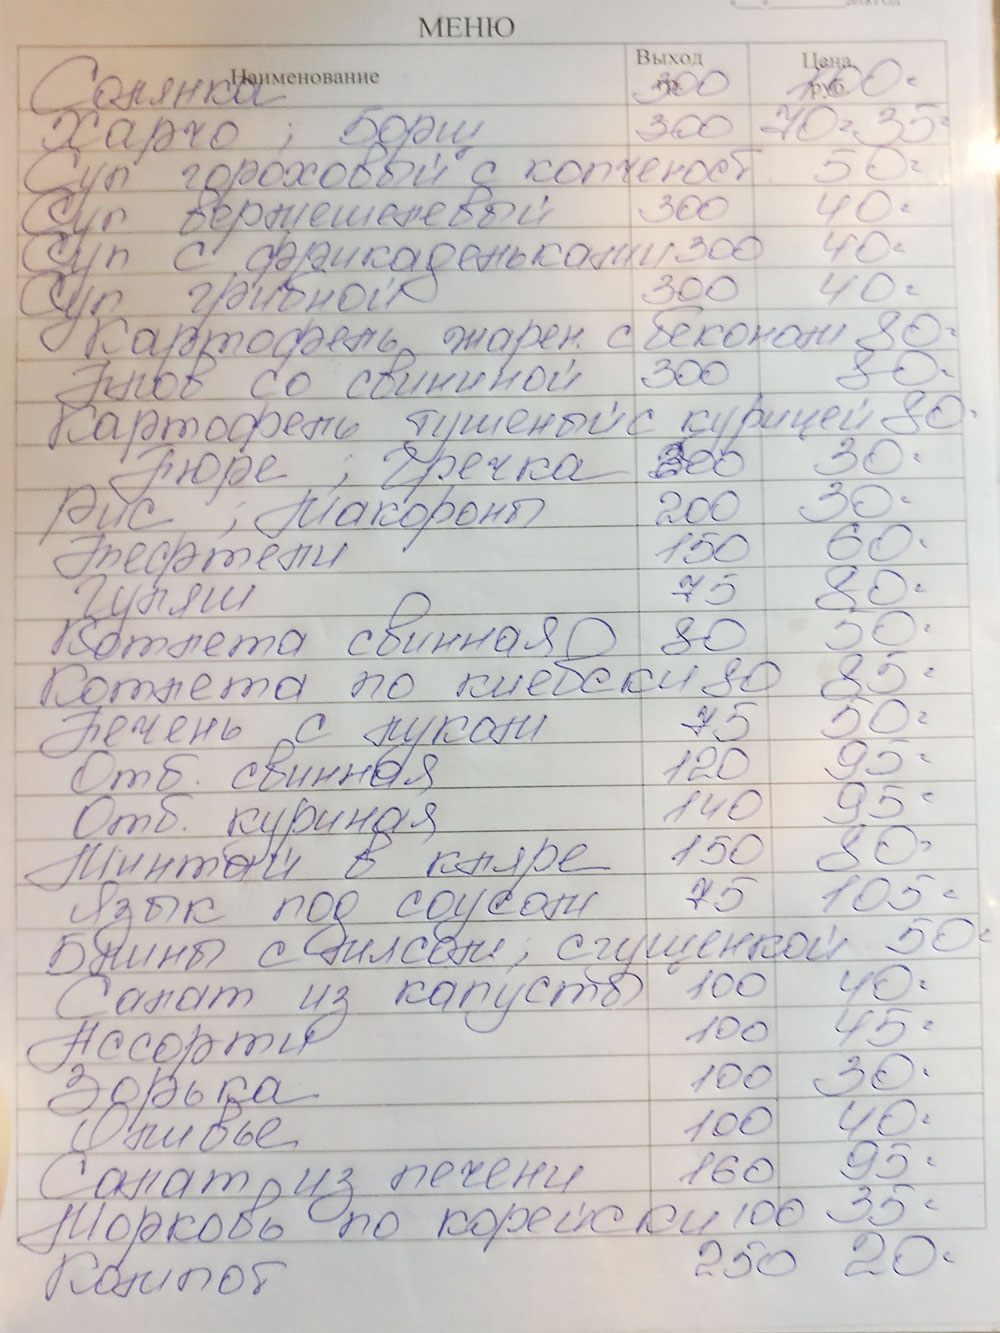 МЕНЮ
Наименование Выход гр. Цена руб.
Солянка 300 100=
Харчо ; Борщ 300 70= 35=
Суп гороховый с копченост 50=
Суп вермешелевый 300 40=
Суп с фрикадельками 300 40=
Суп грибной 300 40=
Картофель жарен. с беконом 80=
Плов со свининой 300 80=
Картофель тушеный с курицей 80=
Пюре ; Гречка 200 30=
Рис ; Макароны 200 30=
Тефтели 150 60=
Гуляш 75 80=
Котлета свинная 80 50=
Котлета по киевски 80 85=
Печень с луком 75 50=
Отб. свинная 120 95=
Отб. куриная 140 95=
Минтай в кляре 150 80=
Язык под соусом 75 105=
Блины с мясом ; сгущенкой 50=
Салат из капусты 100 40=
Ассорти 100 45=
Зорька 100 30=
Оливье 100 40=
Салат из печени 160 95=
Морковь по корейски 100 35=
Компот 250 20=